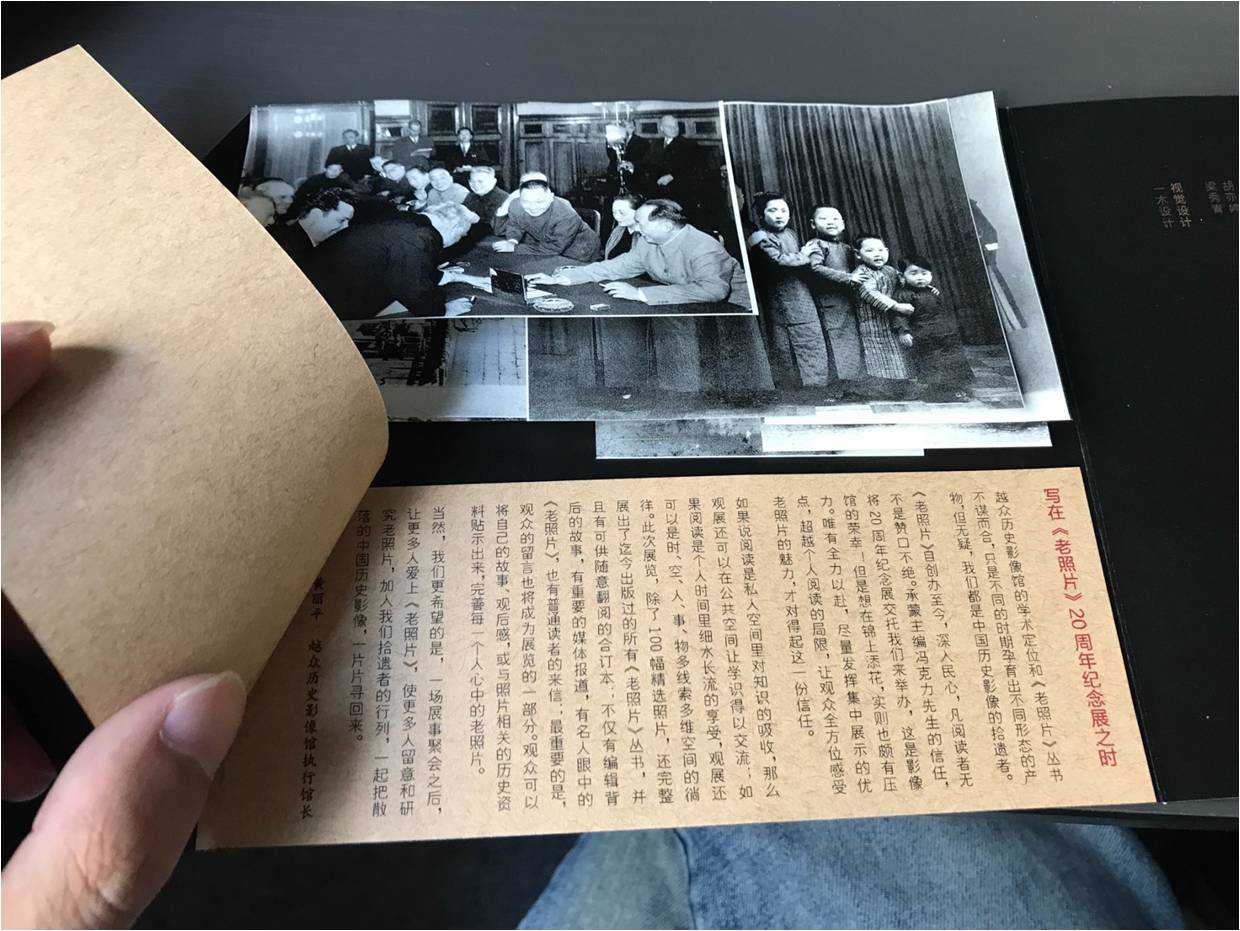 视觉设计
一木设计
写在《老照片》20周年纪念展之时
越众历史影像馆的学术定位和《老照片》丛书
不谋而合。只是不同的时期孕育出不同形态的产
物，但无疑，我们都是中国历史影像的拾遗者。
《老照片》自创办至今，深入民心，凡阅读者无
不是赞口不绝。承蒙主编冯克力先生的信任，
将20周年纪念展交托我们来举办，这是影像
馆的荣幸！但是想在锦上添花，实则也颇有压
力。唯有全力以赴，尽量发挥集中展示的优
点，超越个人阅读的局限，让观众全方位感受
老照片的魅力，才对得起这一份信任。
如果说阅读是私人空间里对知识的吸收，那么
观展还可以在公共空间让学识得以交流；如
果阅读是个人时间里细水长流的享受，观展还
可以是时、空、人、事、物多线索多维空间的徜
徉。此次展览，除了100幅精选照片，还完整
展出了迄今出版过的所有《老照片》丛书，并
且有可供随意翻阅的合订本；不仅有编辑背
后的故事，有重要的媒体报道，有名人眼中的
《老照片》，也有普通读者的来信；最重要的是，
观众的留言也将成为展览的一部分。观众可以
将自己的故事、观后感，或与照片相关的历史资
料贴示出来，完善每一个人心中的老照片。
当然，我们更希望的是，一场展事聚会之后，
让更多人爱上《老照片》，使更多人留意和研
究老照片，加入我们拾遗者的行列，一起把散
落的中国历史影像，一片片寻回来。
丽平 越众历史影像馆执行馆长